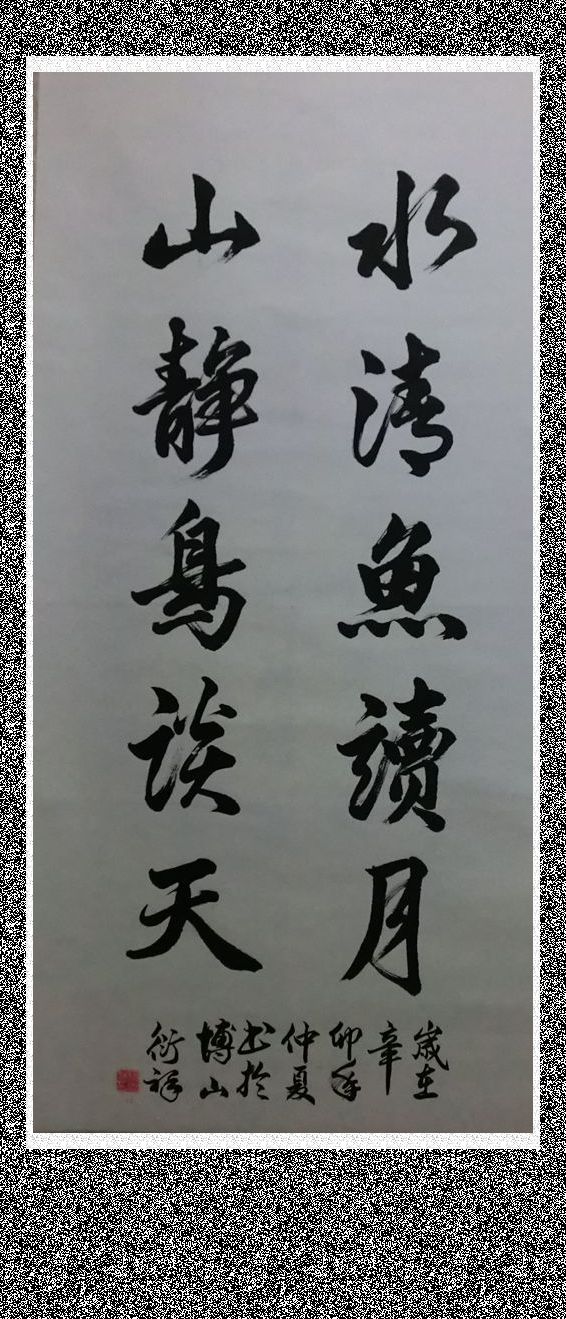 水清魚讀月
山靜鳥談天
歲在
辛
卯年
仲夏
书於
博山
衍祥